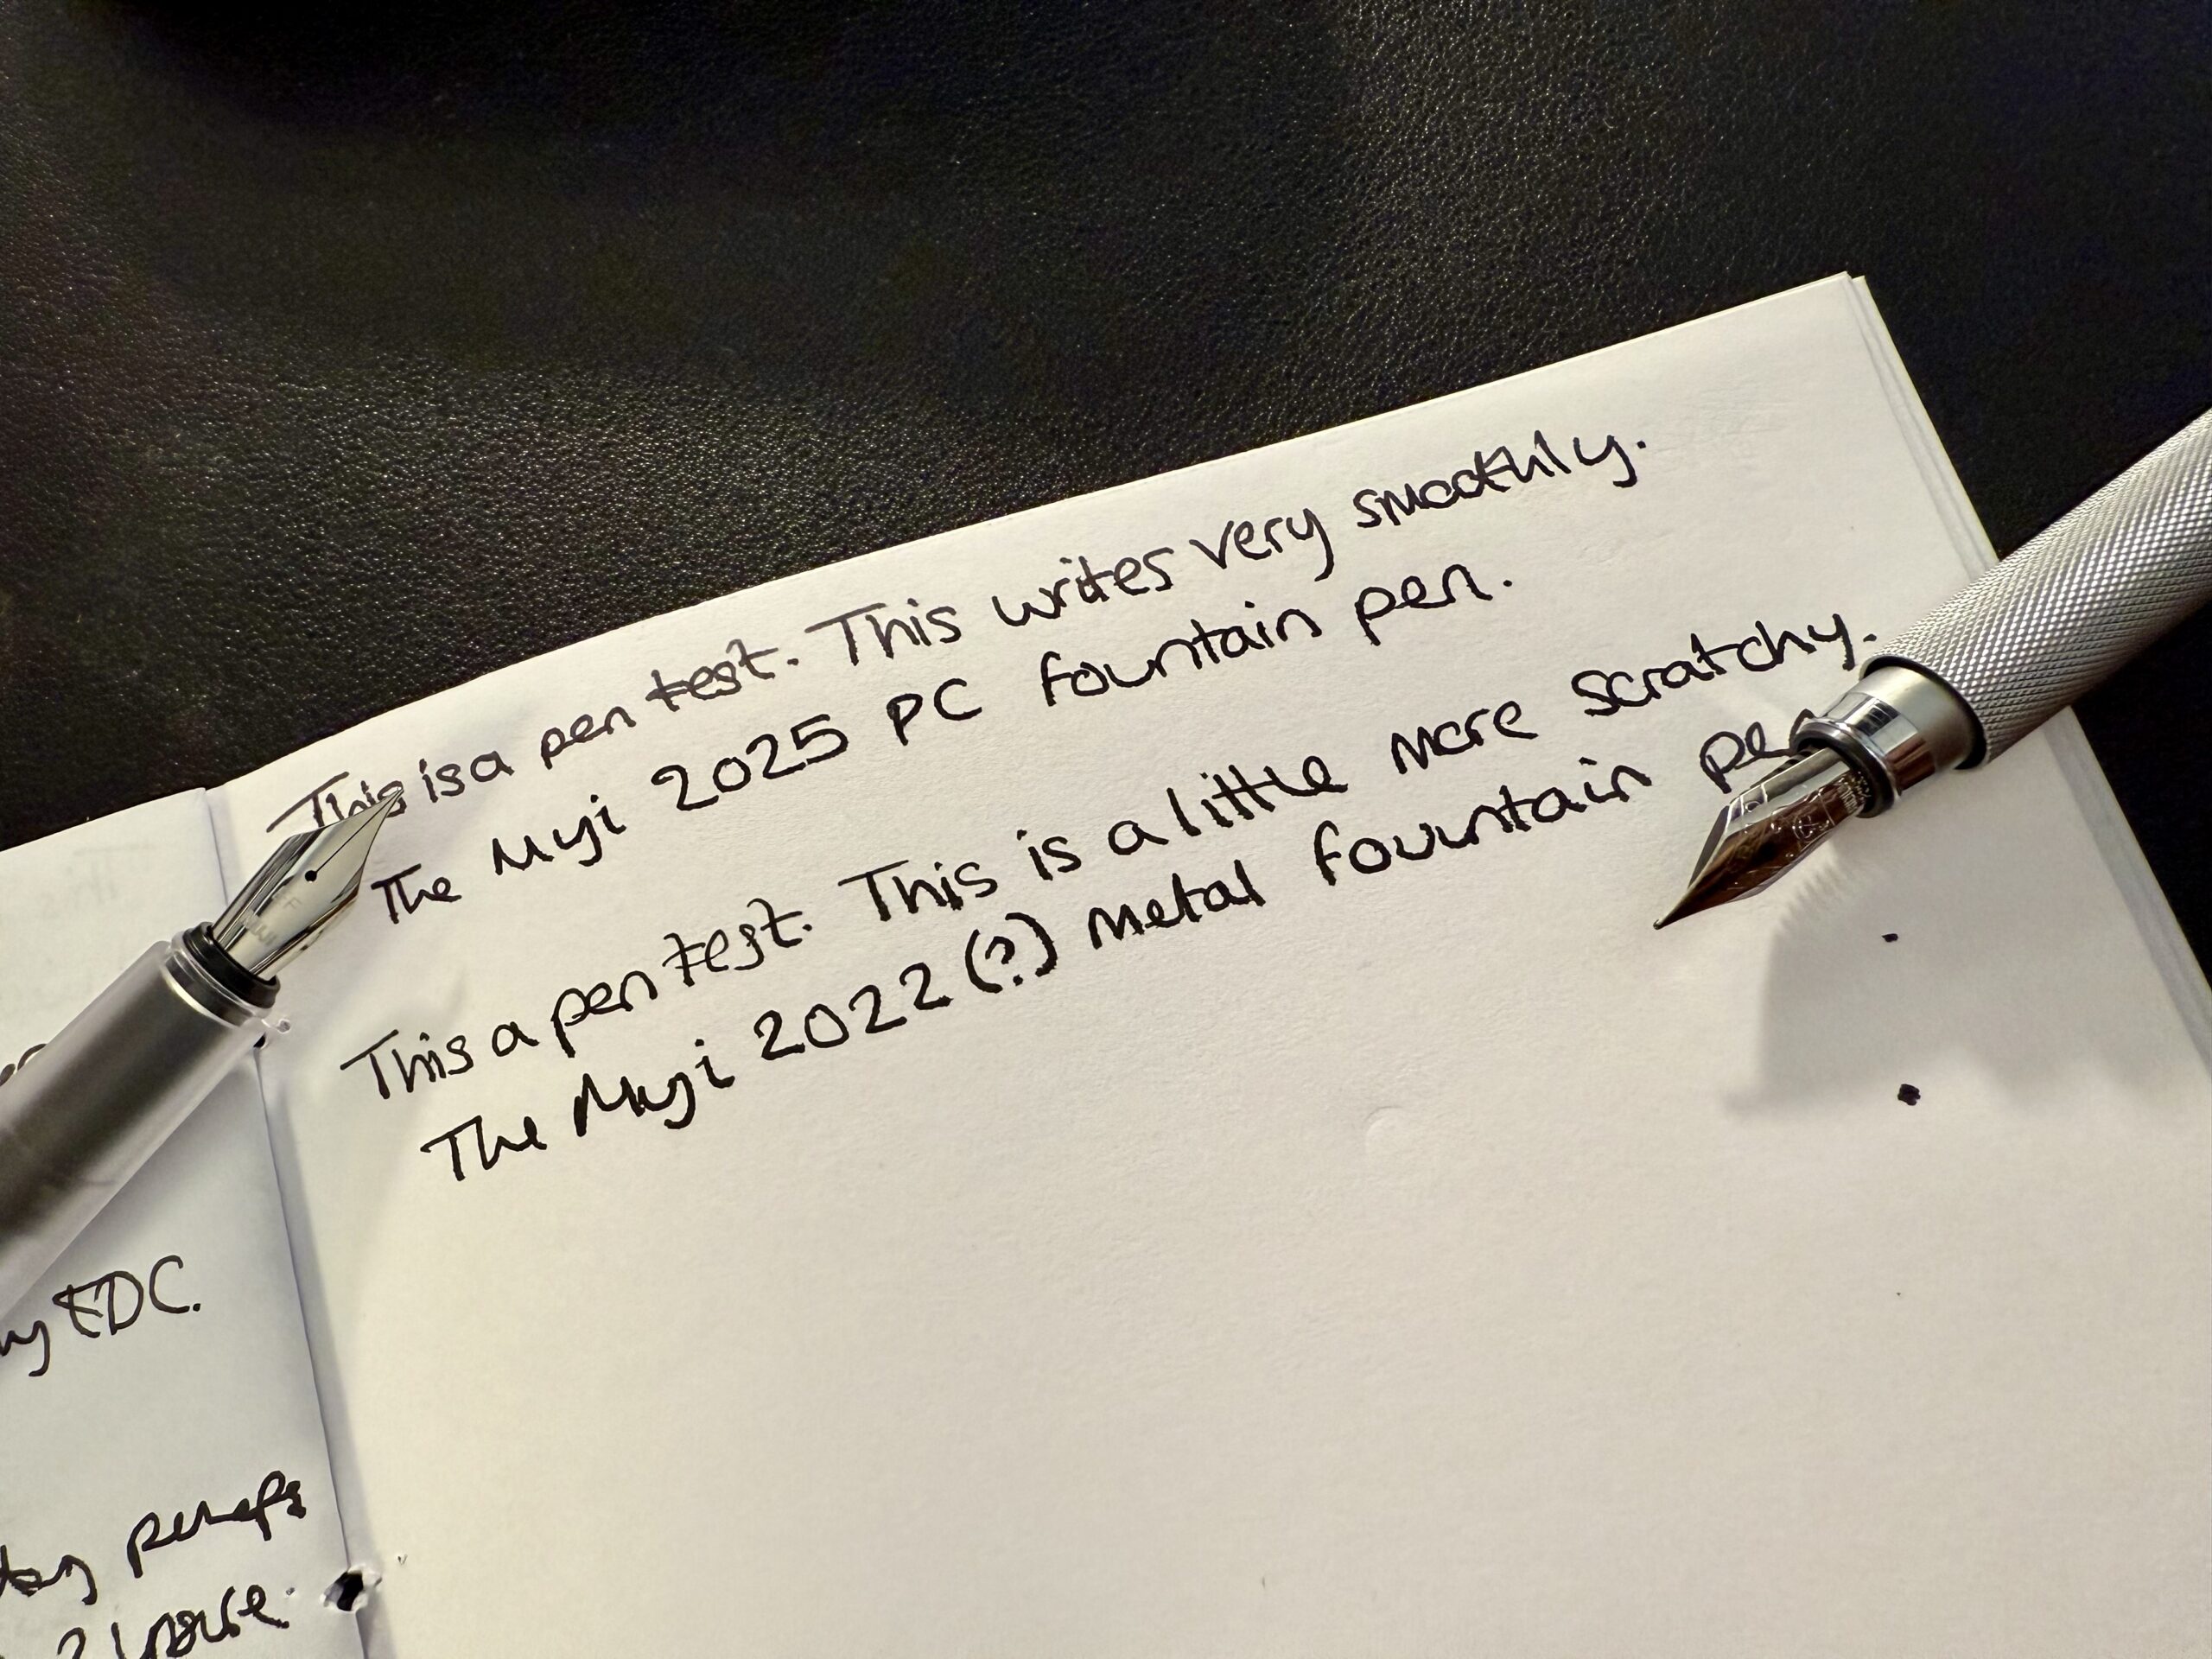 This is a pen test. This writes very smoothly.
The Muji 2025 PC fountain pen.
This a pen test. This is a little more scratchy.
The Muji 2022 (?) metal fouuntain pe
EDC.
perhaps